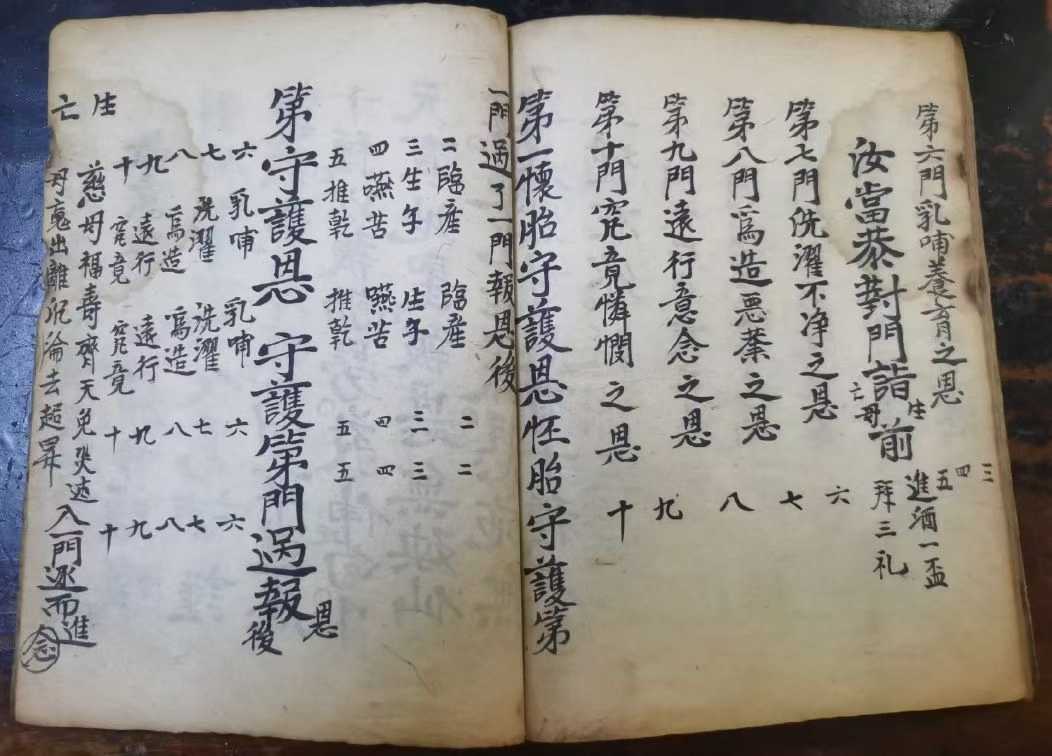 第六門乳哺養育之恩 三
汝當恭對門詣生亡母前 四五 進酒一盃 拜三礼
第七門洗濯不净之恩 六
第八門為造惡業之恩 七
第九門遠行意念之恩 八
第十門究竟憐憫之恩 九
十
第一懷胎守護恩怀胎守護第
一門過了一門報恩後
二臨産 臨産 二 二
三生子 生子 三 三
四嚥苦 嚥苦 四 四
五推乾 推乾 五 五
第守護恩 守護第門過報恩後
六乳哺 乳哺 六 六
七洗濯 洗濯 七 七
八為造 為造 八 八
九遠行 遠行 九 九
十究竟 究竟 十 十
生 慈母福壽齊天免災迍
亡 母魂出離沉淪去超昇
入門逐而進 念